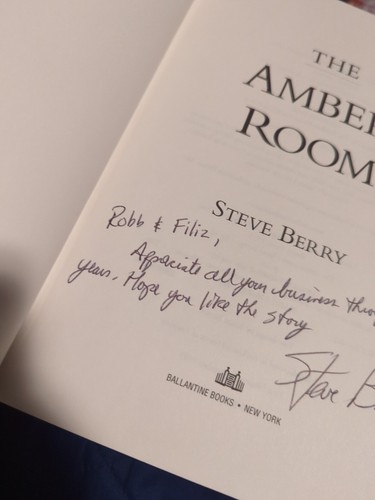 THE
AMBE
ROOM
STEVE BERRY
Robb & Filiz,
Appreciate all your business thro
years. Hope you like the story
Steve B
BALLANTINE BOOKS • NEW YORK